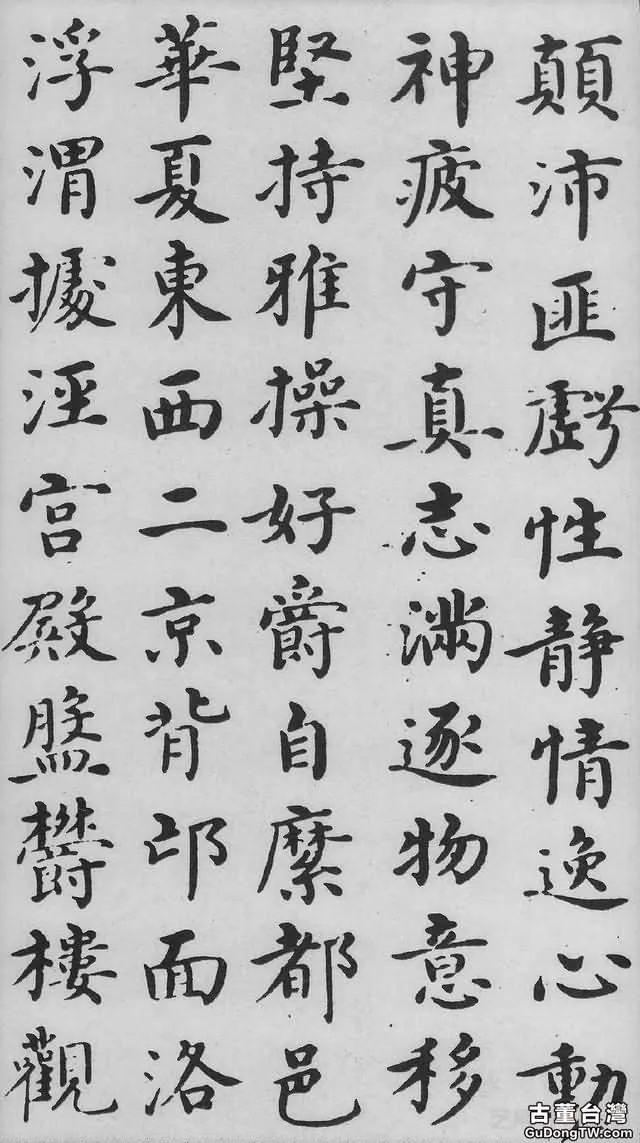 顛沛匪虧性静情逸心動
神疲守真志滿逐物意移
堅持雅操好爵自縻都邑
華夏東西二京背邙面洛
浮渭據涇宫殿盤欝樓觀
古董台灣
GuDongTW.com